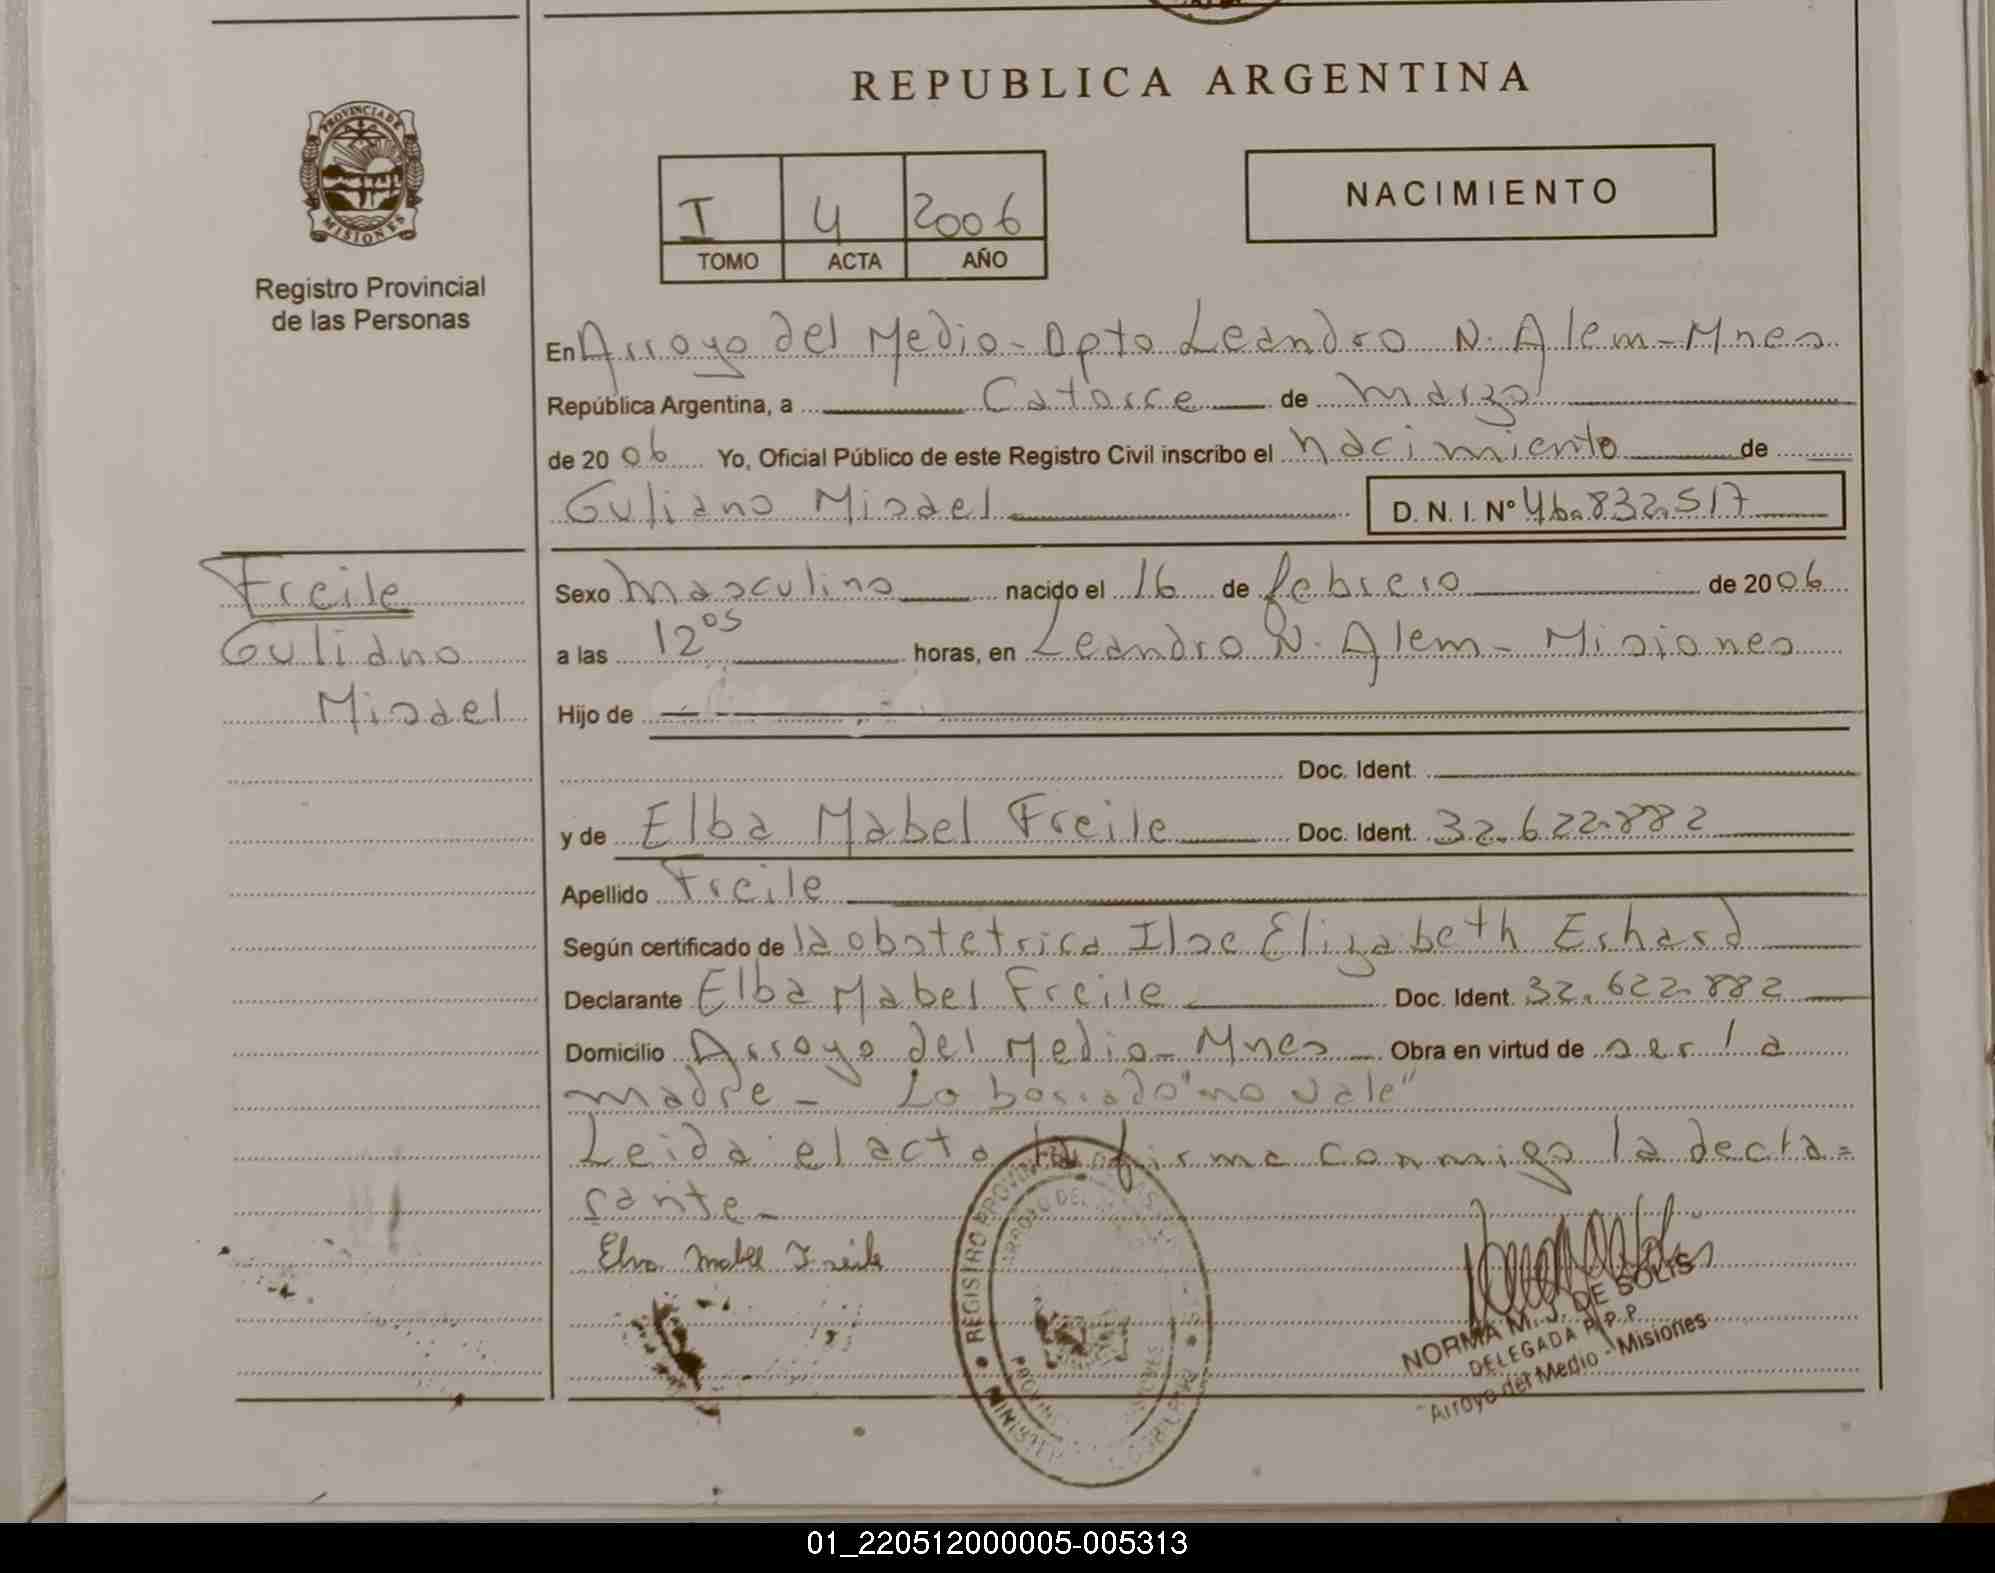 REPUBLICA ARGENTINA
PROVINCIA DE
MISIONES
Registro Provincial
de las Personas
I 4 2006
TOMO ACTA AÑO
NACIMIENTO
En Arroyo del Medio - Dpto Leandro N. Alem - Mnes
República Argentina, a Catorce de marzo
de 2006 Yo, Oficial Público de este Registro Civil inscribo el nacimiento de
Guliano Misael D. N. I. Nº 46.832.517
Freile
Guliano
Misael
Sexo masculino nacido el 16 de febrero de 2006
a las 12 05 horas, en Leandro N. Alem - Misiones
Hijo de
Doc. Ident.
y de Elba Mabel Freile Doc. Ident. 32.622.882
Apellido Freile
Según certificado de la obstetrica Ilse Elizabeth Erhard
Declarante Elba Mabel Freile Doc. Ident. 32.622.882
Domicilio Arroyo del Medio - Mnes - Obra en virtud de ser la
madre - Lo borrado "no vale"
Leida el acta la firma conmigo la decla=
rante -
Elva Mabel Freile
REGISTRO PROVINCIAL DE LAS
ARROYO DEL
NORMA M. J. DE SOLIS
DELEGADA R.P.P.
Arroyo del Medio - Misiones
01_220512000005-005313